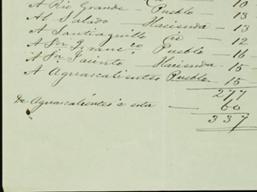 A Rio Grande - Pueblo - 10
Al Salado - Hacienda - 13
A Santiaguillo - id - 12
A Sn Franco - Pueblo - 16
A Sn Jacinto - Hacienda - 15
A Aguascalientes Pueblo - 15
277
De Aguascalientes a esta - 60
337